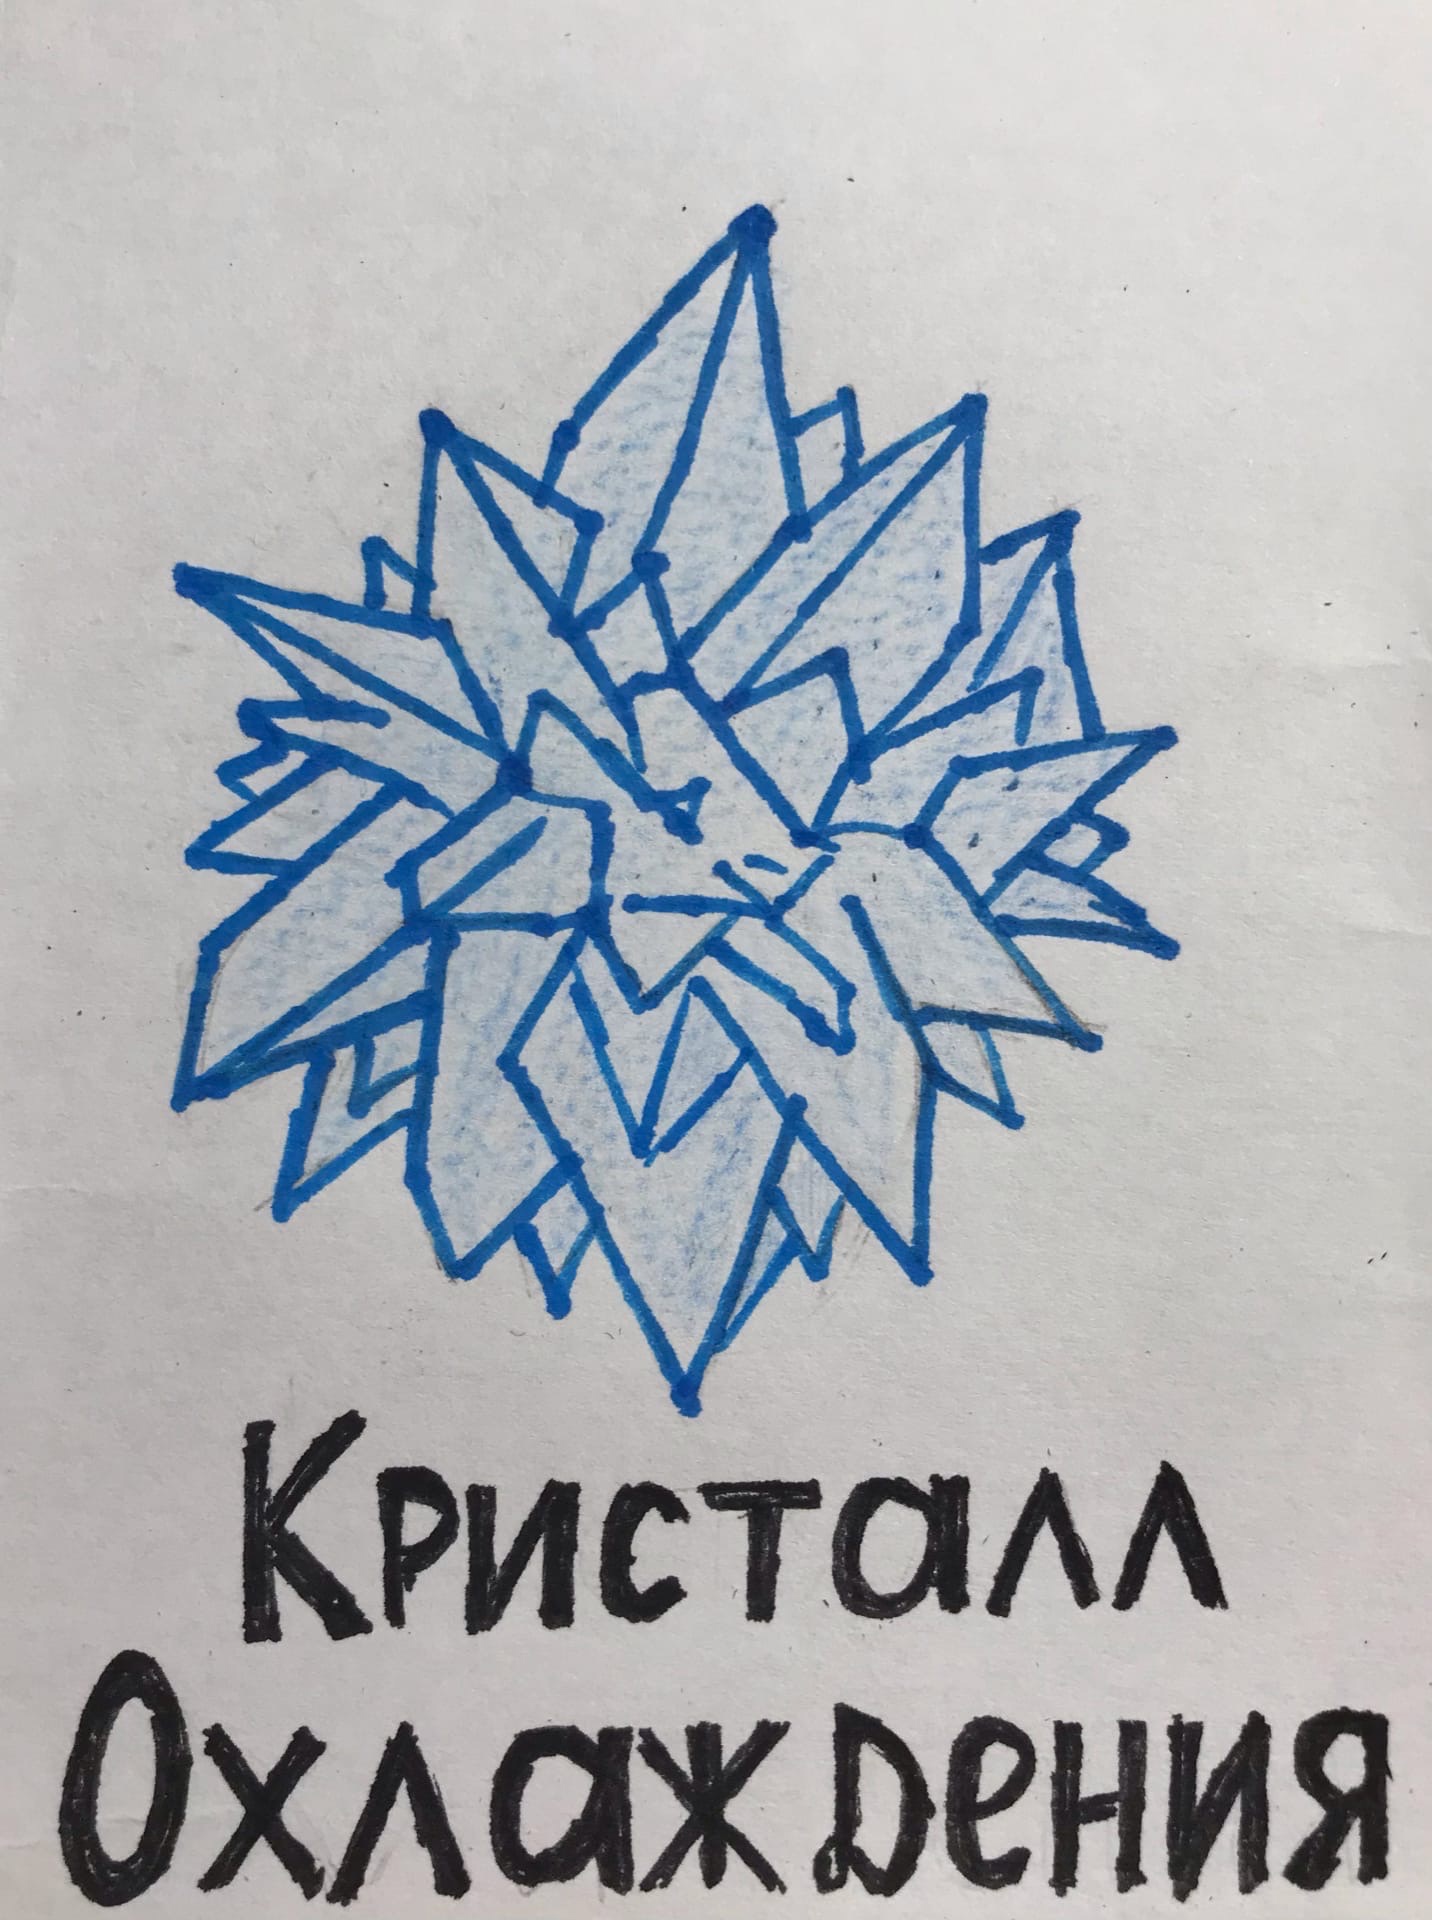 Кристалл
Охлаждения